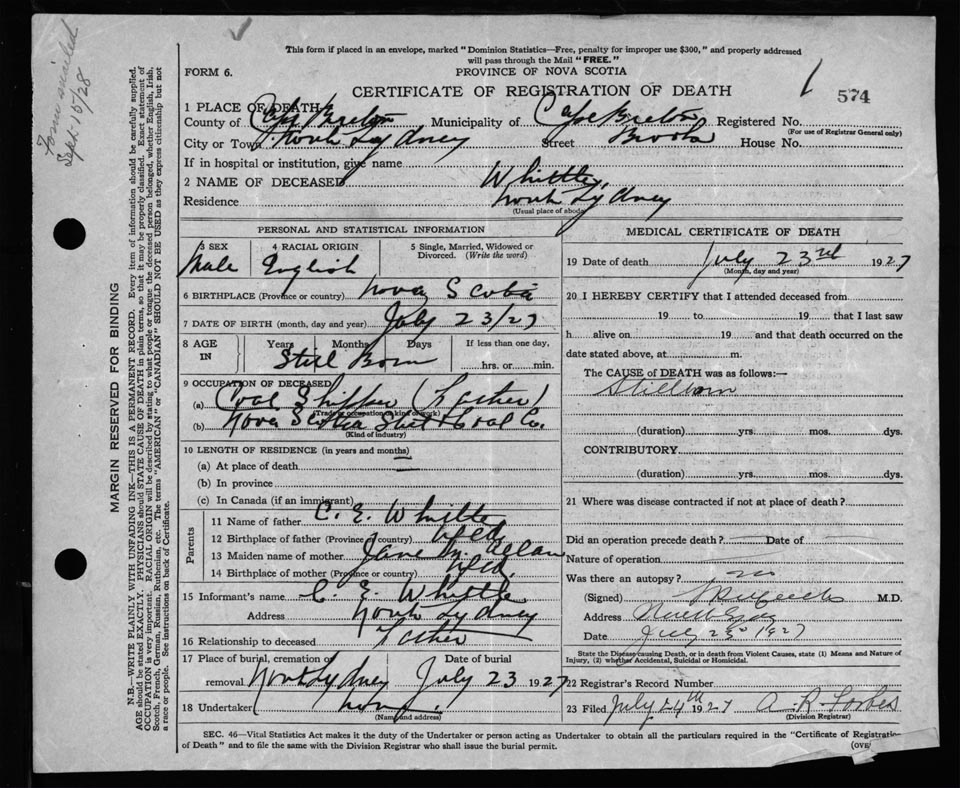 Form mailed
Sept 15/28
This form if placed in an envelope, marked "Dominion Statistics—Free, penalty for improper use $300," and properly addressed
will pass through the Mail "FREE."
FORM 6. PROVINCE OF NOVA SCOTIA
CERTIFICATE OF REGISTRATION OF DEATH
1 574
1 PLACE OF DEATH
County of Cape Breton Municipality of Cape Breton Registered No.
(For use of Registrar General only)
City or Town North Sydney Street House No.
If in hospital or institution, give name
2 NAME OF DECEASED Whittle,
Residence North Sydney
(Usual place of abode)
PERSONAL AND STATISTICAL INFORMATION
3 SEX 4 RACIAL ORIGIN 5 Single, Married, Widowed or
Divorced. (Write the word)
Male English
6 BIRTHPLACE (Province or country) Nova Scotia
7 DATE OF BIRTH (month, day and year) July 23/27
8 AGE IN Years Months Days If less than one day,
Still Born hrs. or min.
9 OCCUPATION OF DECEASED
(a) Coal Shipper (Father)
(Trade, occupation or kind of work)
(b) Nova Scotia Steel & Coal Co.
(Kind of industry)
10 LENGTH OF RESIDENCE (in years and months)
(a) At place of death
(b) In province
(c) In Canada (if an immigrant)
Parents
11 Name of father C. E. Whittle
12 Birthplace of father (Province or country) Nfld
13 Maiden name of mother Jane M.
14 Birthplace of mother (Province or country) Nfld.
15 Informant's name C. E. Whittle
Address North Sydney
16 Relationship to deceased Father
17 Place of burial, cremation or Date of burial
removal North Sydney July 23 1927
18 Undertaker
(Name and address)
MEDICAL CERTIFICATE OF DEATH
19 Date of death July 23rd 1927
(Month, day and year)
20 I HEREBY CERTIFY that I attended deceased from
19 to 19 that I last saw
h alive on 19 and that death occurred on the
date stated above, at m.
The CAUSE of DEATH was as follows:—
Stillborn
(duration) yrs. mos. dys.
CONTRIBUTORY
(duration) yrs. mos. dys.
21 Where was disease contracted if not at place of death?
Did an operation precede death? — Date of —
Nature of operation
Was there an autopsy? no
(Signed) M.D.
Address
Date July 23 1927
State the Disease causing Death, or in death from Violent Causes, state (1) Means and Nature of
Injury, (2) whether Accidental, Suicidal or Homicidal.
22 Registrar's Record Number
23 Filed July 24th 1927 A. R. Forbes
(Division Registrar)
SEC. 46—Vital Statistics Act makes it the duty of the Undertaker or person acting as Undertaker to obtain all the particulars required in the "Certificate of Registration
of Death" and to file the same with the Division Registrar who shall issue the burial permit. (OVE
MARGIN RESERVED FOR BINDING
N.B.—WRITE PLAINLY WITH UNFADING INK—THIS IS A PERMANENT RECORD. Every item of information should be carefully supplied.
AGE should be stated EXACTLY. PHYSICIANS should STATE CAUSE OF DEATH in plain terms, so that it may be properly classified. Exact statement of
OCCUPATION is very important. RACIAL ORIGIN will be described by stating to what people or tongue the deceased person belonged, whether English, Irish,
Scotch, French, German, Russian, Ruthenian, etc. The terms "AMERICAN" or "CANADIAN" SHOULD NOT BE USED as they express citizenship but not
a race or people. See instructions on back of Certificate.